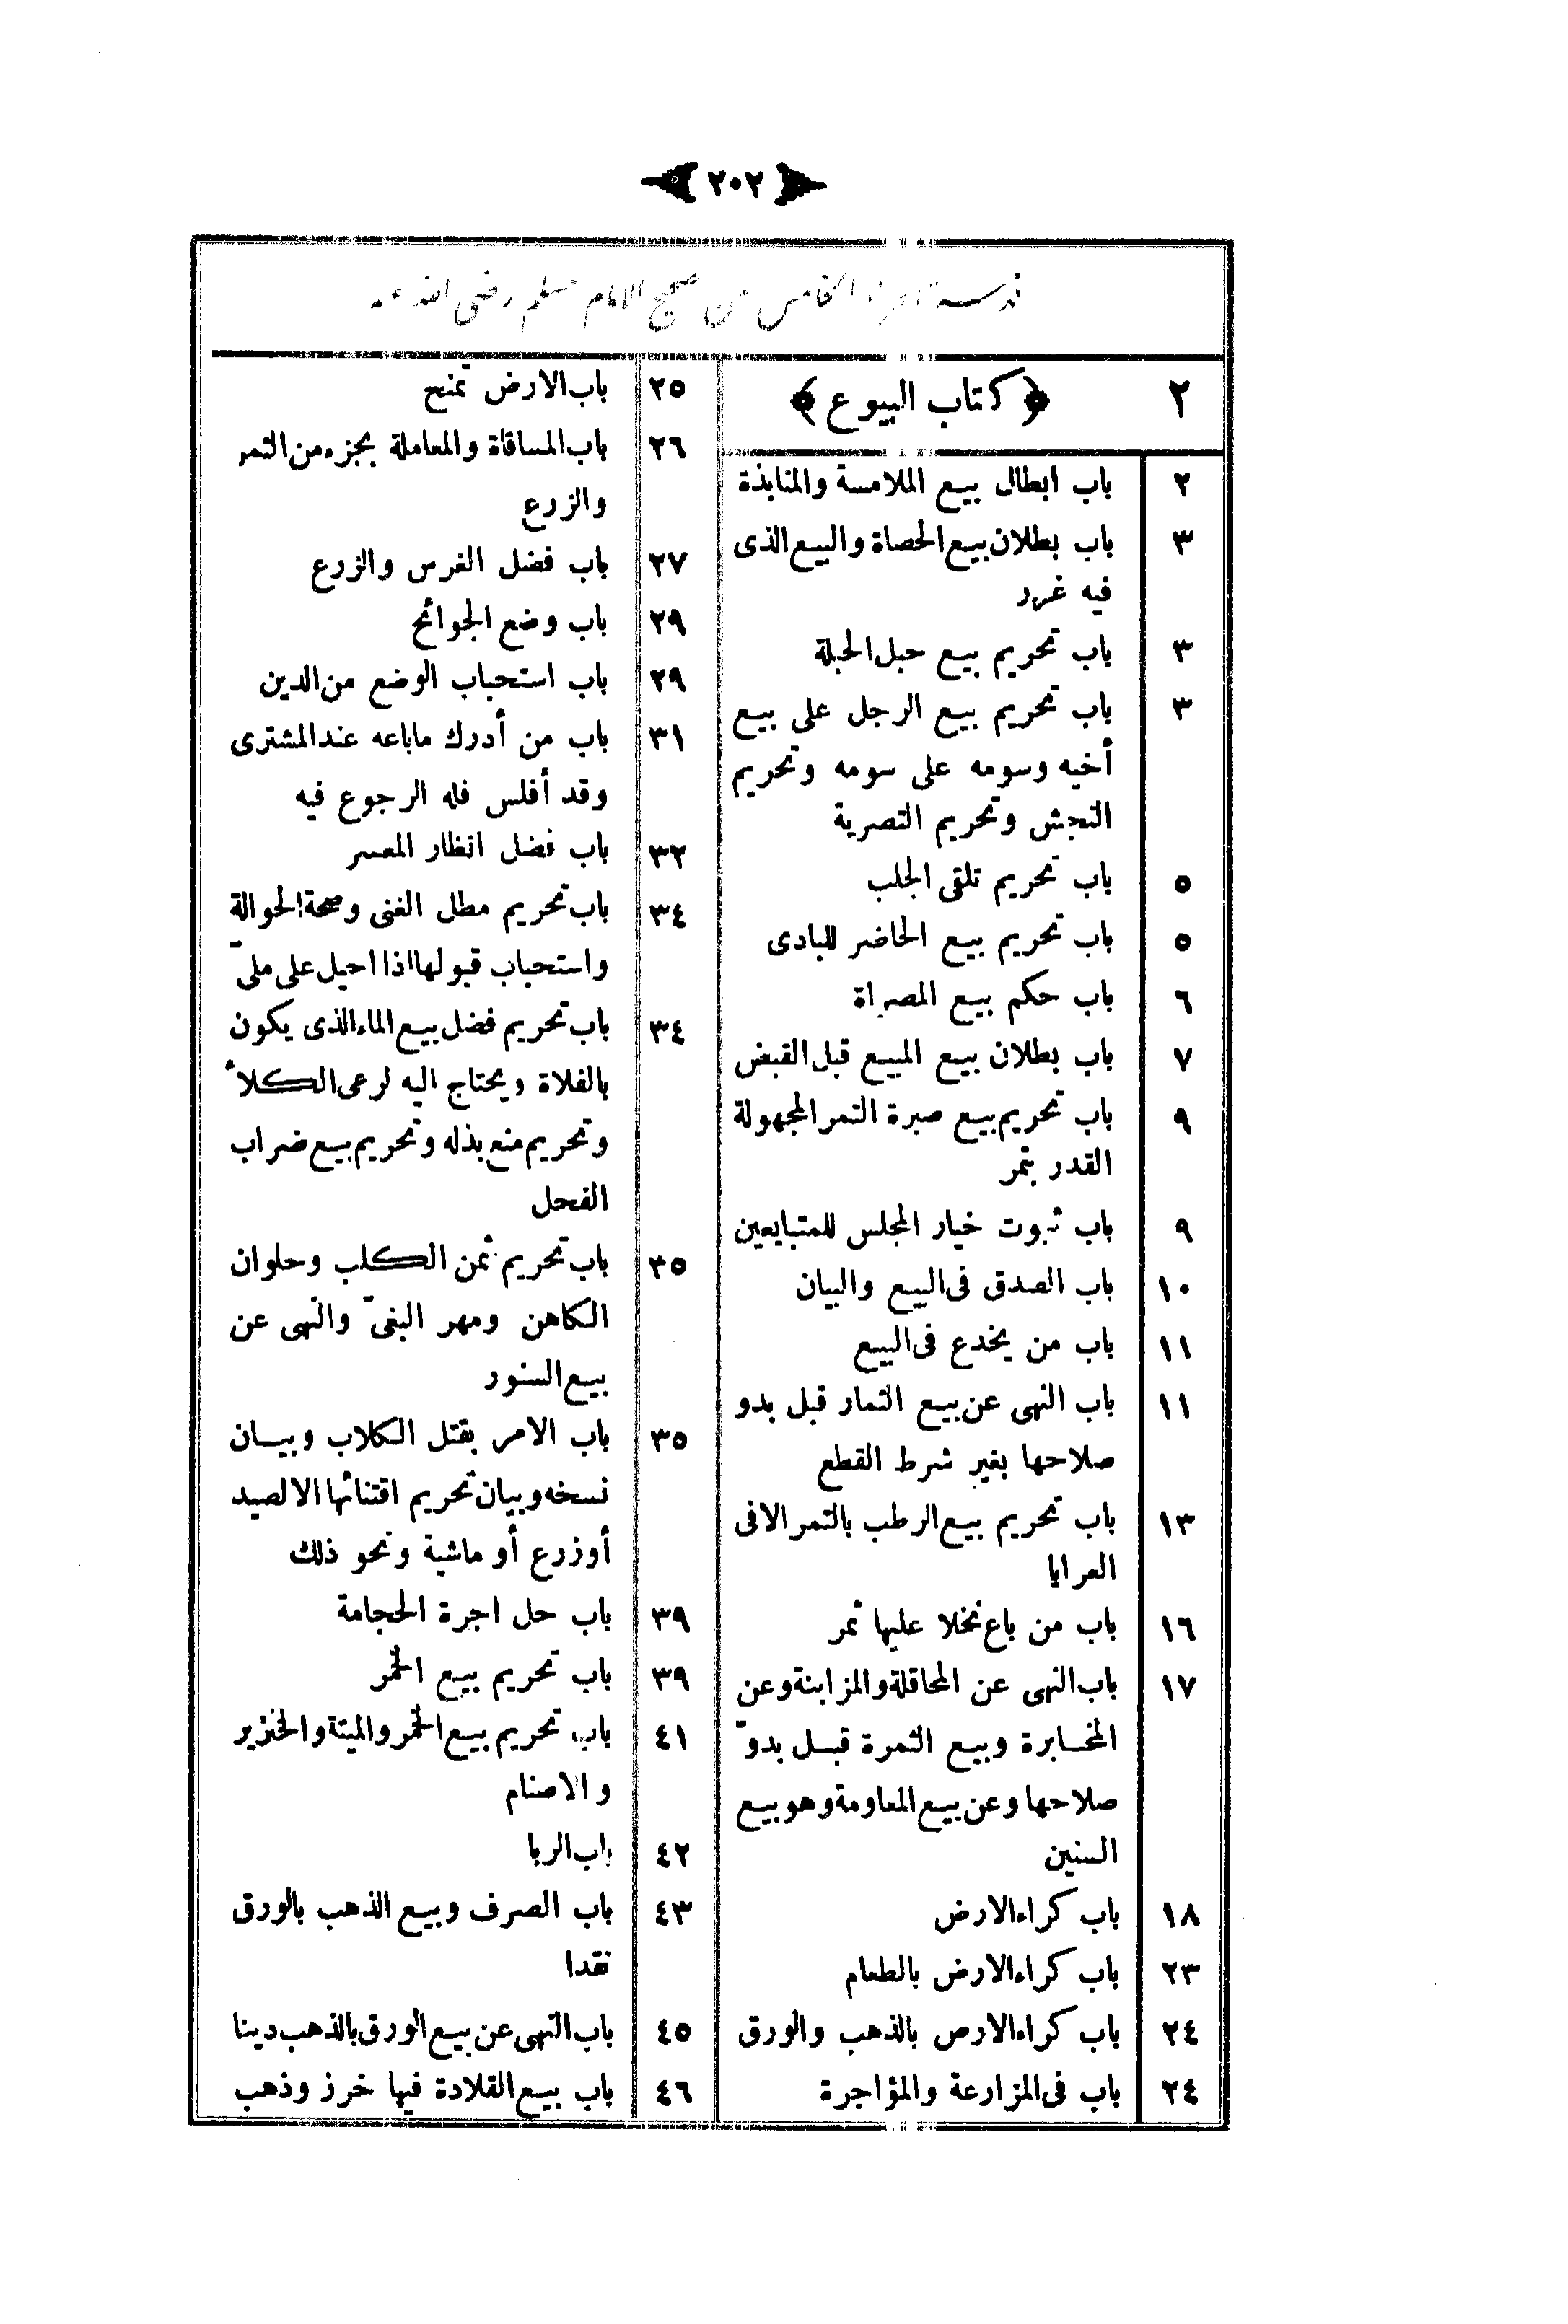 ٢٠٢
الخامس من صحيح الامام مسلم رضى الله عنه
٢ ﴿ كتاب البيوع ﴾
٢ باب ابطال بيع الملامسة والمنابذة
٣ باب بطلان بيع الحصاة والبيع الذى
فيه غرر
٣ باب تحريم بيع حبل الحبلة
٣ باب تحريم بيع الرجل على بيع
أخيه وسومه على سومه وتحريم
النجش وتحريم التصرية
٥ باب تحريم تلقى الجلب
٥ باب تحريم بيع الحاضر للبادى
٦ باب حكم بيع المصراة
٧ باب بطلان بيع المبيع قبل القبض
٩ باب تحريم بيع صبرة التمر المجهولة
القدر بتمر
٩ باب ثبوت خيار المجلس للمتبايعين
١٠ باب الصدق فى البيع والبيان
١١ باب من يخدع فى البيع
١١ باب النهى عن بيع الثمار قبل بدو
صلاحها بغير شرط القطع
١٣ باب تحريم بيع الرطب بالتمر الا فى
العرايا
١٦ باب من باع نخلا عليها ثمر
١٧ باب النهى عن المحاقلة والمزابنة وعن
المخابرة وبيع الثمرة قبل بدوّ
صلاحها وعن بيع المعاومة وهو بيع
السنين
١٨ باب كراء الارض
٢٣ باب كراء الارض بالطعام
٢٤ باب كراء الارض بالذهب والورق
٢٤ باب فى المزارعة والمؤاجرة
٢٥ باب الارض تمنح
٢٦ باب المساقاة والمعاملة بجزء من الثمر
والزرع
٢٧ باب فضل الغرس والزرع
٢٩ باب وضع الجوائح
٢٩ باب استحباب الوضع من الدين
٣١ باب من أدرك ماباعه عند المشترى
وقد أفلس فله الرجوع فيه
٣٢ باب فضل انظار المعسر
٣٤ باب تحريم مطل الغنى وصحة الحوالة
واستحباب قبولها اذا احيل على ملىّ
٣٤ باب تحريم فضل بيع الماء الذى يكون
بالفلاة ويحتاج اليه لرعى الكلأ
وتحريم منع بذله وتحريم بيع ضراب
الفحل
٣٥ باب تحريم ثمن الكلب وحلوان
الكاهن ومهر البغىّ والنهى عن
بيع السنور
٣٥ باب الامر بقتل الكلاب وبيان
نسخه وبيان تحريم اقتنائها الا لصيد
أو زرع أو ماشية ونحو ذلك
٣٩ باب حل اجرة الحجامة
٣٩ باب تحريم بيع الخمر
٤١ باب تحريم بيع الخمر والميتة والخنزير
والاصنام
٤٢ باب الربا
٤٣ باب الصرف وبيع الذهب بالورق
نقدا
٤٥ باب النهى عن بيع الورق بالذهب دينا
٤٦ باب بيع القلادة فيها خرز وذهب